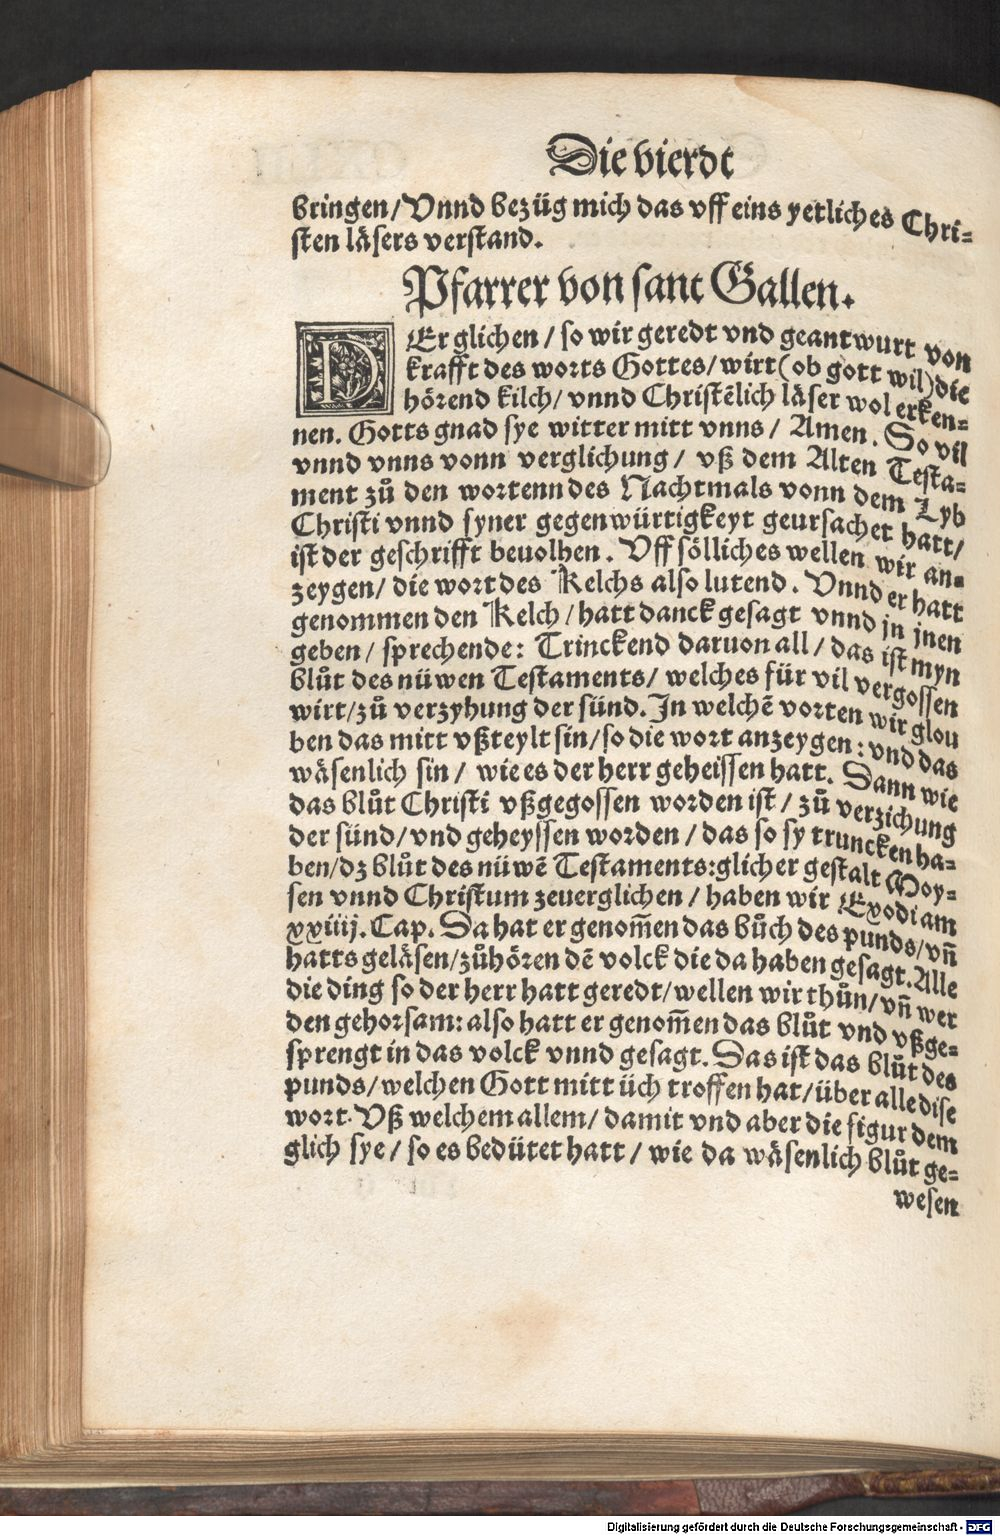 Die vierdt
bringen/ Vnnd bezüg mich das vff eins yetliches Chri⸗
sten läsers verstand.
Pfarrer von sant Gallen.
DEr glichen / so wir geredt vnd geantwurt von
krafft des worts Gottes/ wirt (ob gott wil) die
hörend kilch/ vnnd Christēlich läser wol erken⸗
nen. Gotts gnad sye witter mitt vnns / Amen. So vil
vnnd vnns vonn verglichung/ vß dem Alten Testa⸗
ment zů den wortenn des Nachtmals vonn dem Lyb
Christi vnnd syner gegenwürtigkeyt geursachet hatt/
ist der geschrifft beuolhen. Vff sölliches wellen wir an⸗
zeygen/ die wort des Kelchs also lutend. Vnnd er hatt
genommen den Kelch / hatt danck gesagt vnnd jn jnen
geben / sprechende: Trinckend daruon all / das ist myn
blůt des nüwen Testaments/ welches für vil vergossen
wirt/ zů verzyhung der sünd. In welchē vorten wir glou
ben das mitt vßteylt sin/ so die wort anzeygen: vnd das
wäsenlich sin / wie es der herr geheissen hatt. Dann wie
das blůt Christi vßgegossen worden ist / zů verzichung
der sünd/ vnd geheyssen worden / das so sy truncken ha⸗
ben/ dz blůt des nüwē Testaments: glicher gestalt Moy⸗
sen vnnd Christum zeuerglichen / haben wir Exodi am
xxiiij. Cap. Da hat er genom̄en das bůch des punds/ vn̄
hatts geläsen/ zůhören dē volck die da haben gesagt. Alle
die ding so der herr hatt geredt/ wellen wir thůn/ vn̄ wer
den gehorsam: also hatt er genom̄en das blůt vnd vßge⸗
sprengt in das volck vnnd gesagt. Das ist das blůt des
punds/ welchen Gott mitt üch troffen hat/ über alle dise
wort. Vß welchem allem/ damit vnd aber die figur dem
glich sye / so es bedütet hatt / wie da wäsenlich blůt ge⸗
wesen
Digitalisierung gefördert durch die Deutsche Forschungsgemeinschaft - DFG